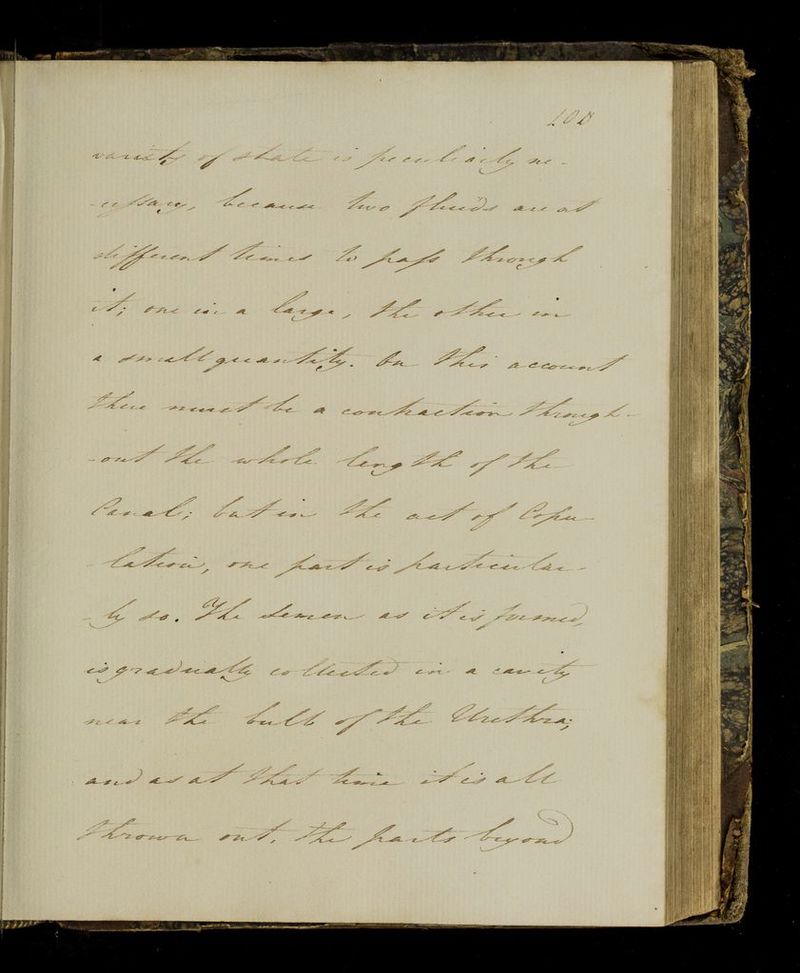 108
variety of state is peculiarly ne-
-cessary, because two fluids are at
different times to pass through
it; one in a large, the other in
a small quantity. On this account
there must be a contraction through-
-out the whole length of the
Canal; but in the act of Copu-
lation, one part is particular-
-ly so. The Semen as it is formed,
is gradually collected in a cavity
near the bulb of the Urethra;
and as at that time it is all
thrown out, the parts beyond